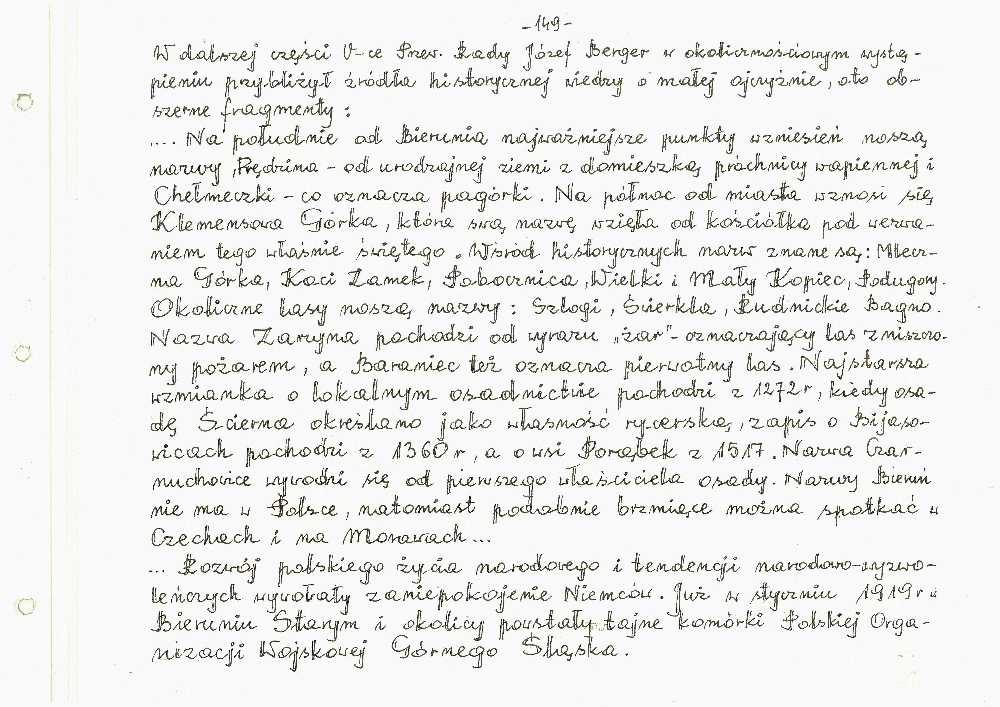 -149-
W dalszej części V-ce Przew. Rady Józef Berger w okolicznościowym wystą-
pieniu przybliżył źródła historycznej wiedzy o małej ojczyźnie, oto ob-
szerne fragmenty:
.... Na południe od Bierunia najważniejsze punkty wzniesień noszą
nazwy, Prędzina - od urodzajnej ziemi z domieszką próchnicy wapiennej i
Chełmeczki - co oznacza pagórki. Na północ od miasta wznosi się
Klemensowa Górka, która swą nazwę wzięła od kościółka pod wezwa-
niem tego właśnie świętego. Wśród historycznych nazw znane są: Mlecz-
na Górka, Kaci Zamek, Pobocznica, Wielki i Mały Kopiec, Podugory.
Okoliczne lasy noszą nazwy: Szlogi, Świerkla, Rudnickie Bagno.
Nazwa Zaryna pochodzi od wyrazu „żar"- oznaczający las zniszczo-
ny pożarem, a Baraniec też oznacza pierwotny las. Najstarsza
wzmianka o lokalnym osadnictwie pochodzi z 1272r, kiedy osa-
dę Ścierna określano jako własność rycerską, zapis o Bijaso-
wicach pochodzi z 1360r, a o wsi Porąbek z 1517. Nazwa Czar-
nuchowice wywodzi się od pierwszego właściciela osady. Nazwy Bieruń
nie ma w Polsce, natomiast podobnie brzmiące można spotkać w
Czechach i na Morawach...
... Rozwój polskiego życia narodowego i tendencji narodowo-wyzwo-
leńczych wywołały zaniepokojenie Niemców. Już w styczniu 1919r w
Bieruniu Starym i okolicy powstały tajne komórki Polskiej Orga-
nizacji Wojskowej Górnego Śląska.